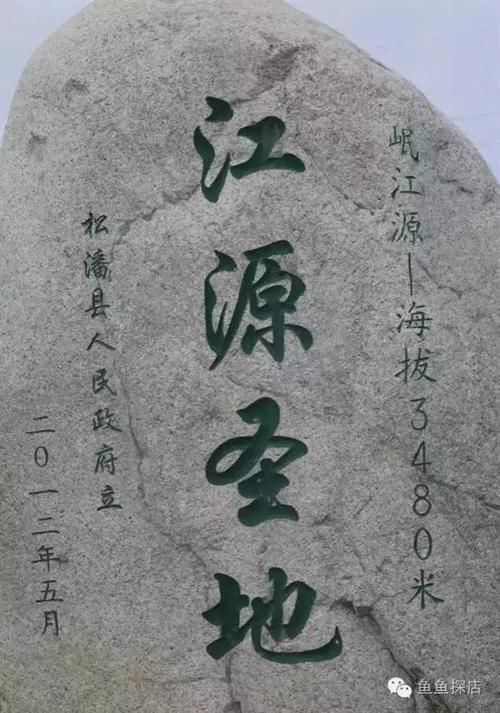 岷江源—海拔3480米
江源圣地
松潘县人民政府立
二〇一二年五月
鱼鱼探店